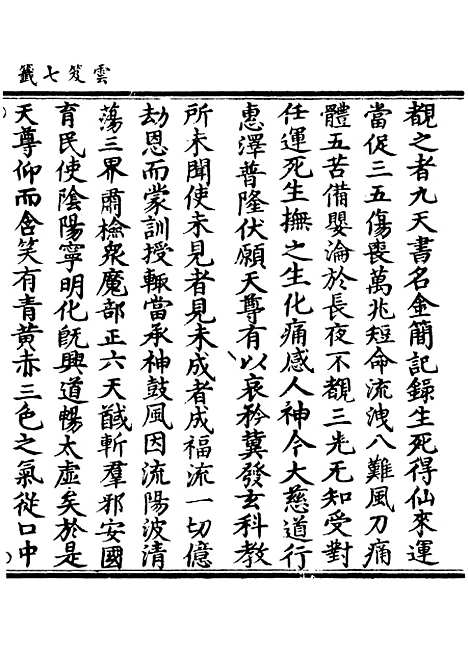 雲笈七籤
覩之者九天書名金簡記錄生死得仙來運
當促三五傷喪萬兆短命流洩八難風刀痛
體五苦備嬰淪於長夜不覩三光无知受對
任運死生撫之生化痛感人神今大慈道行
惠澤普隆伏願天尊有以哀矜冀發玄科教
所未聞使未見者見未成者成福流一切億
劫恩而蒙訓授輙當承神鼓風因流陽波清
蕩三界肅檢衆魔部正六天馘斬羣邪安國
育民使陰陽寧明化旣興道暢太虛矣於是
天尊仰而含笑有青黃赤三色之氣從口中